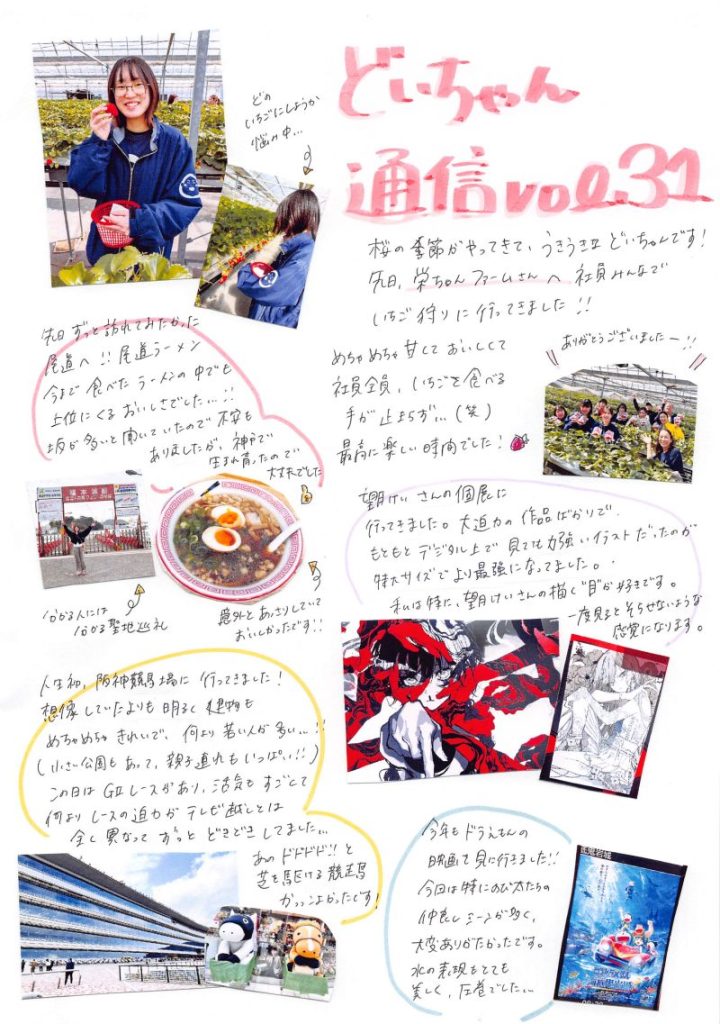 どいちゃん
通信vol.31
どの
いちごにしようか
悩み中…
桜の季節がやってきて、うきうき立 どいちゃんです!
先日、栄ちゃんファームさんへ 社員みんなで
いちご狩りに行ってきました!!
めちゃめちゃ甘くておいしくて
社員全員、いちごを食べる
手が止まらず…(笑)
最高に楽しい時間でした!
ありがとうございましたー!!
先日ずっと訪れてみたかった
尾道へ!!尾道ラーメン
今まで食べたラーメンの中でも
上位にくるおいしさでした…!!
坂が多いと聞いていたので不安も
ありましたが、神戸で
生まれ育ったので
大丈夫でした
福本渡船
分かる人には
分かる聖地巡礼
意外とあっさりしていて
おいしかったです!!
望月けいさんの個展に
行ってきました。大迫力の作品ばかりで、
もともとデジタル上で見ても力強いイラストだったのが
特大サイズでより最強になってました。
私は特に、望月けいさんの描く"目"が好きです。
一度見ると そらせないような
感覚になります。
人生初、阪神競馬場に行ってきました!
想像していたよりも明るく建物も
めちゃめちゃきれいで、何より若い人が多い…!!
(小さい公園もあって、親子連れもいっぱい!!)
この日はGⅡレースがあり、活気もすごくて
何よりレースの迫力がテレビ越しとは
全く異なってずっとどきどきしてました…
あのドドドド!!と
芝を駆ける競走馬
かっっこよかったです!
今年もドラえもんの
映画を見に行きました!!
今回は特にのび太たちの
仲良しシーンが多く、
大変ありがたかったです。
水の表現もとても
美しく、圧巻でした…